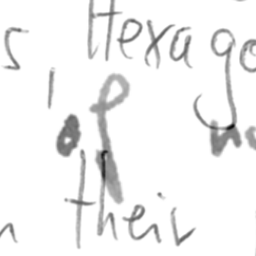 s, Hexago
of no
n their